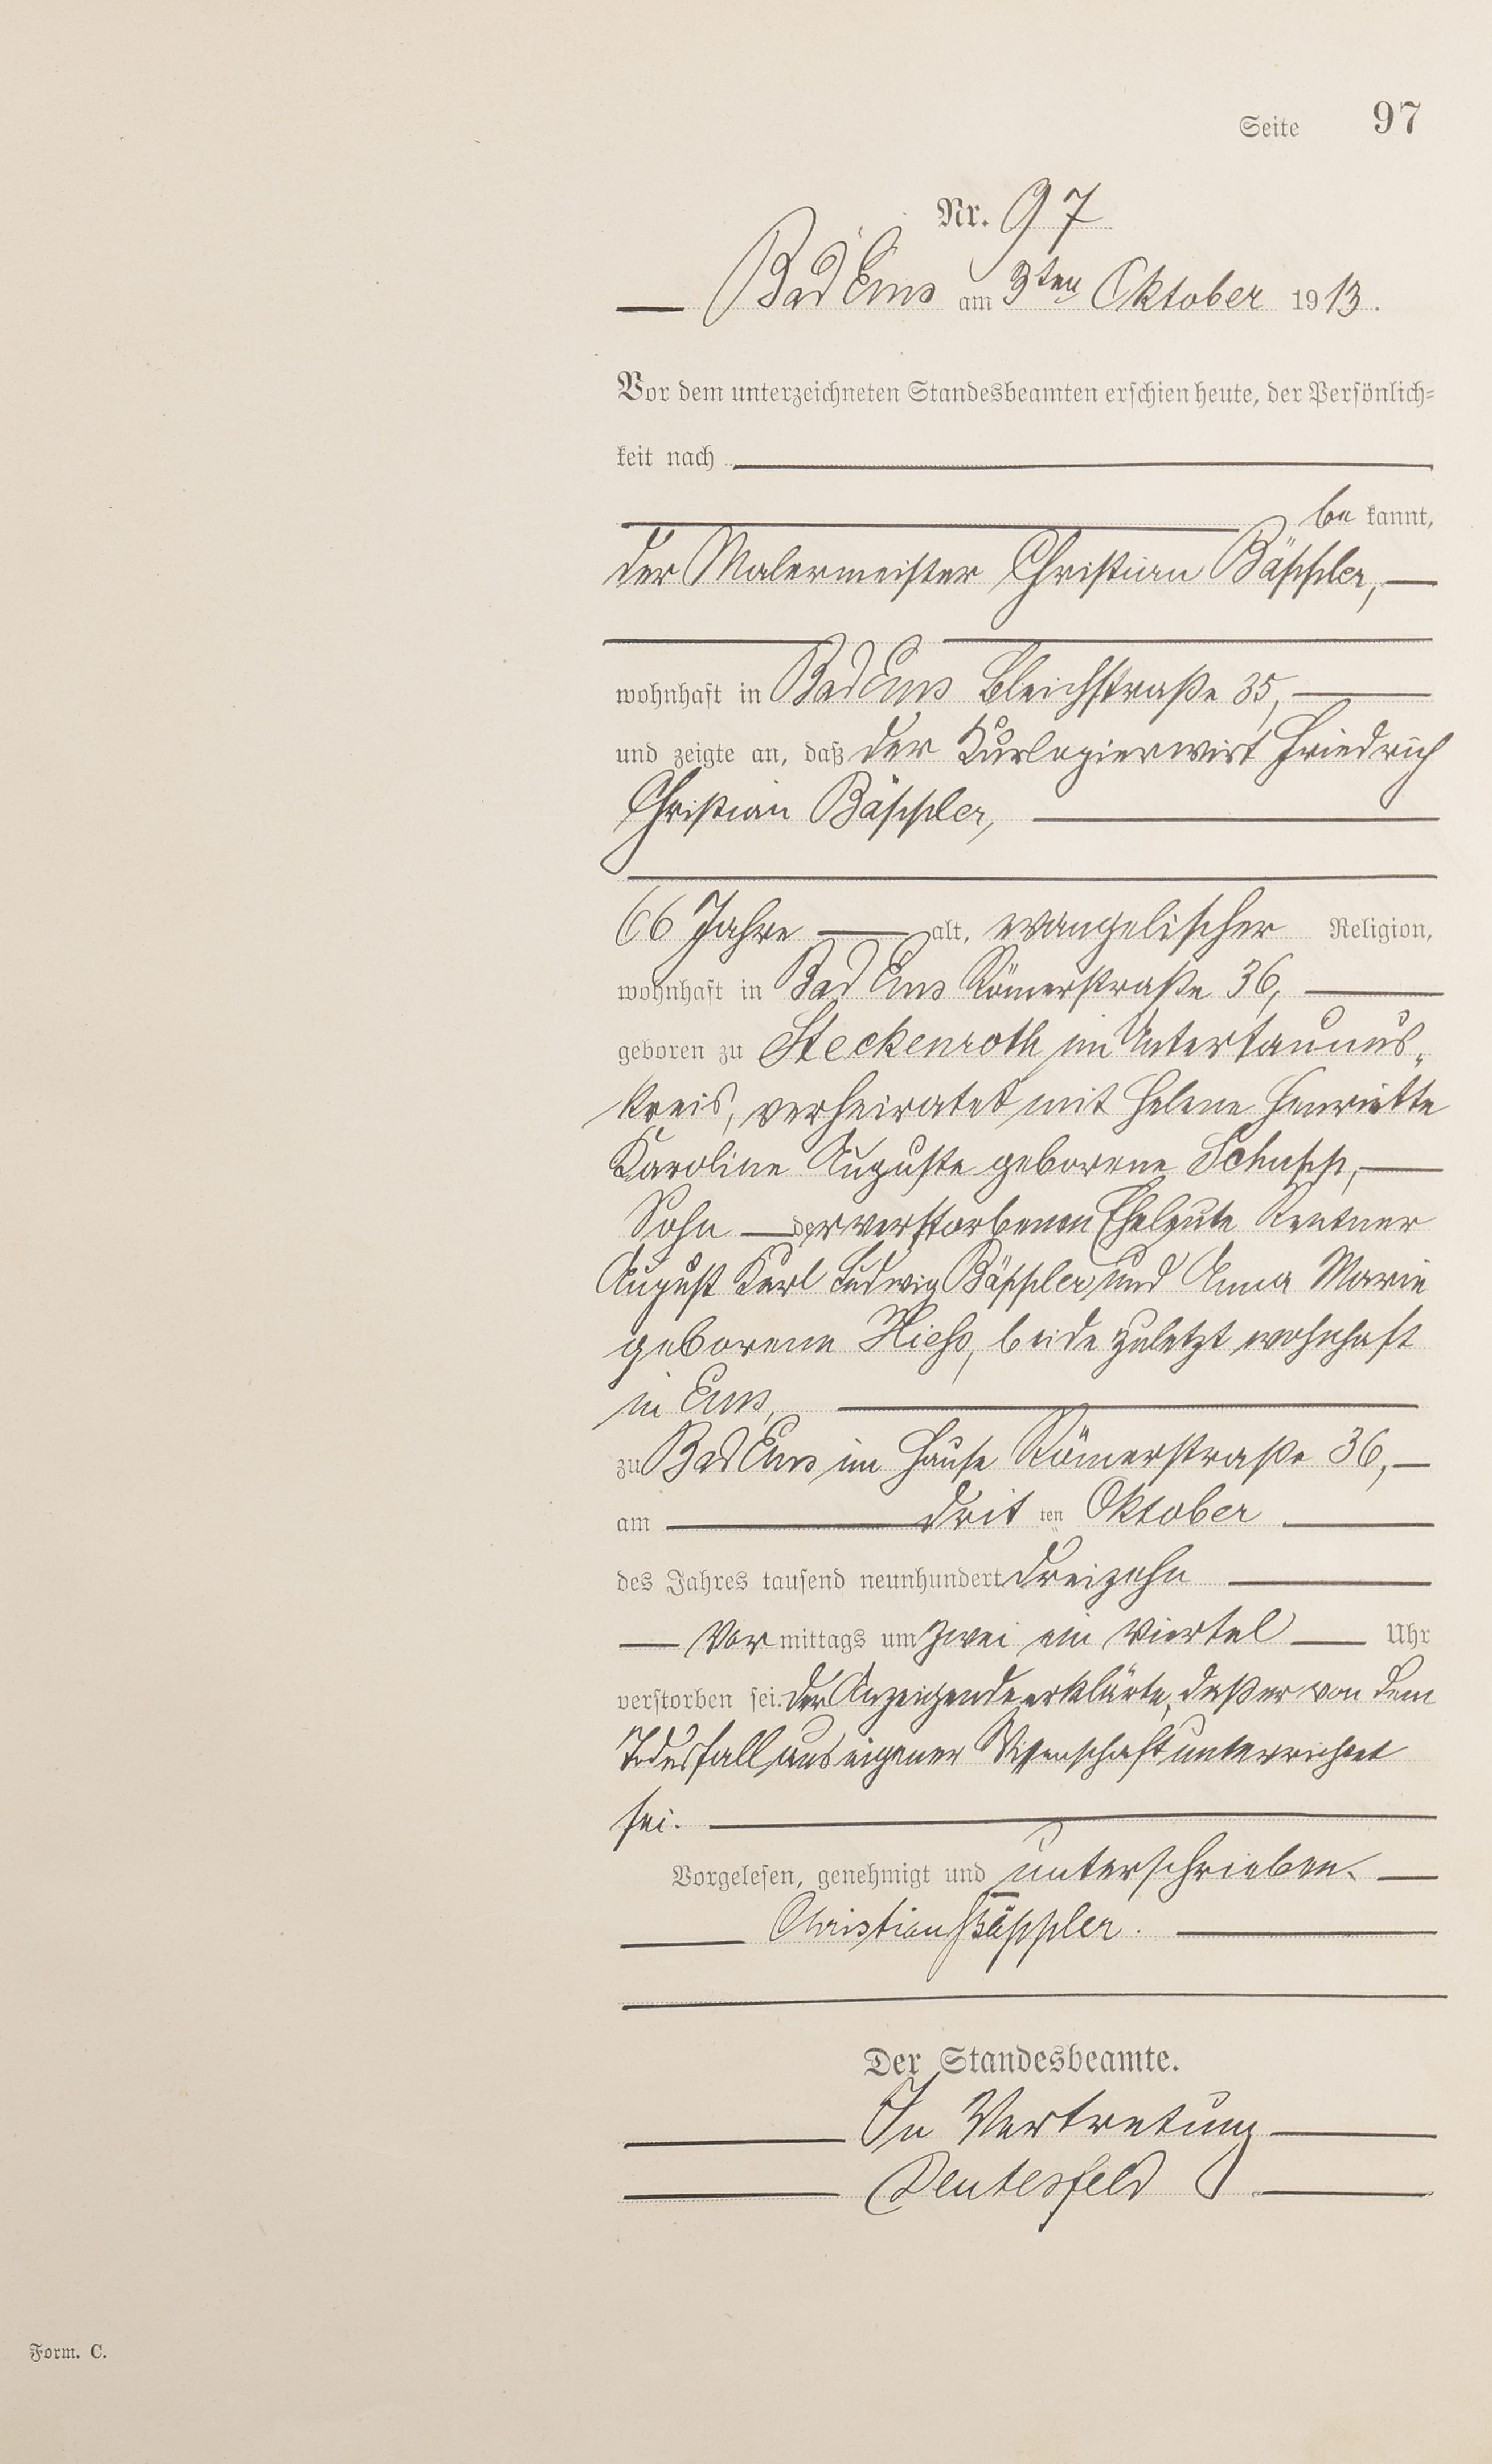 Seite 97
Nr. 97
Bad Ems am 3ten Oktober 1913.
Vor dem unterzeichneten Standesbeamten erschien heute, der Persönlich-
keit nach
be kannt,
der Malermeister Christian Bäppler,
wohnhaft in Bad Ems Bleichstraße 35,
und zeigte an, daß der Kurlogierwirt Friedrich
Christian Bäppler,
66 Jahre alt, evangelischer Religion,
wohnhaft in Bad Ems Römerstraße 36,
geboren zu Steckenroth im Untertaunus-
kreis, verheiratet mit Helene Henriette
Karoline Auguste geborene Schupp,
Sohn der verstorbenen Eheleute Rentner
August Karl Ludwig Bäppler und Anna Marie
geborene beide zuletzt wohnhaft
in Ems,
zu Bad Ems im Hause Römerstraße 36,
am dritten Oktober
des Jahres tausend neunhundert dreizehn
Vor mittags um zwei ein Viertel Uhr
verstorben sei. Der Anzeigende erklärte, daß er von dem
Todesfall aus eigener Wissenschaft unterrichtet
sei.
Vorgelesen, genehmigt und unterschrieben.
Christian Bäppler.
Der Standesbeamte.
In Vertretung
Form. C.